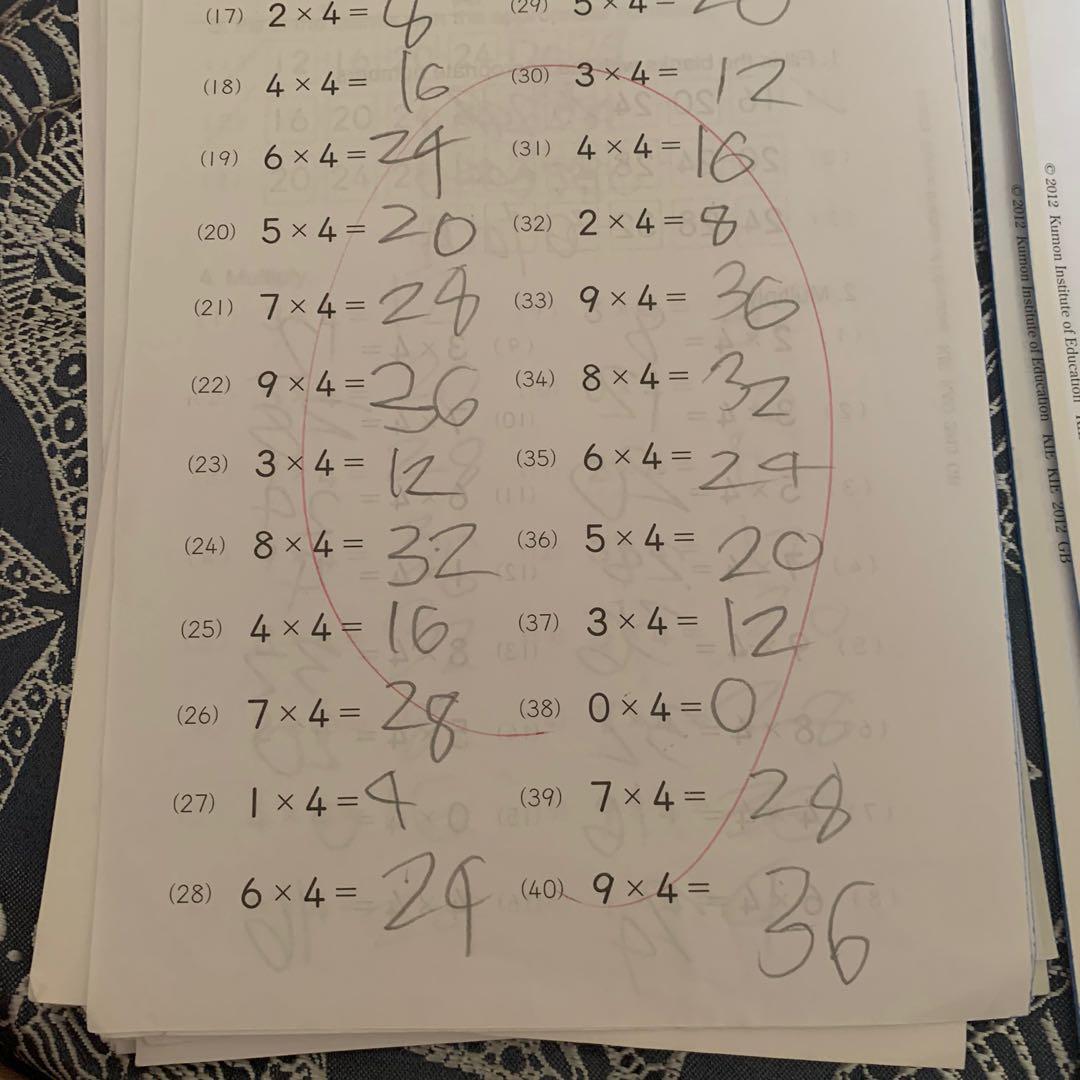 (17) 2 × 4 = 8
(18) 4 × 4 = 16
(19) 6 × 4 = 24
(20) 5 × 4 = 20
(21) 7 × 4 = 28
(22) 9 × 4 = 36
(23) 3 × 4 = 12
(24) 8 × 4 = 32
(25) 4 × 4 = 16
(26) 7 × 4 = 28
(27) 1 × 4 = 4
(28) 6 × 4 = 24
(29) 5 × 4 = 20
(30) 3 × 4 = 12
(31) 4 × 4 = 16
(32) 2 × 4 = 8
(33) 9 × 4 = 36
(34) 8 × 4 = 32
(35) 6 × 4 = 24
(36) 5 × 4 = 20
(37) 3 × 4 = 12
(38) 0 × 4 = 0
(39) 7 × 4 = 28
(40) 9 × 4 = 36
© 2012 Kumon Institute of Education KIE KIE 2012 GB
© 2012 Kumon Institute of Education